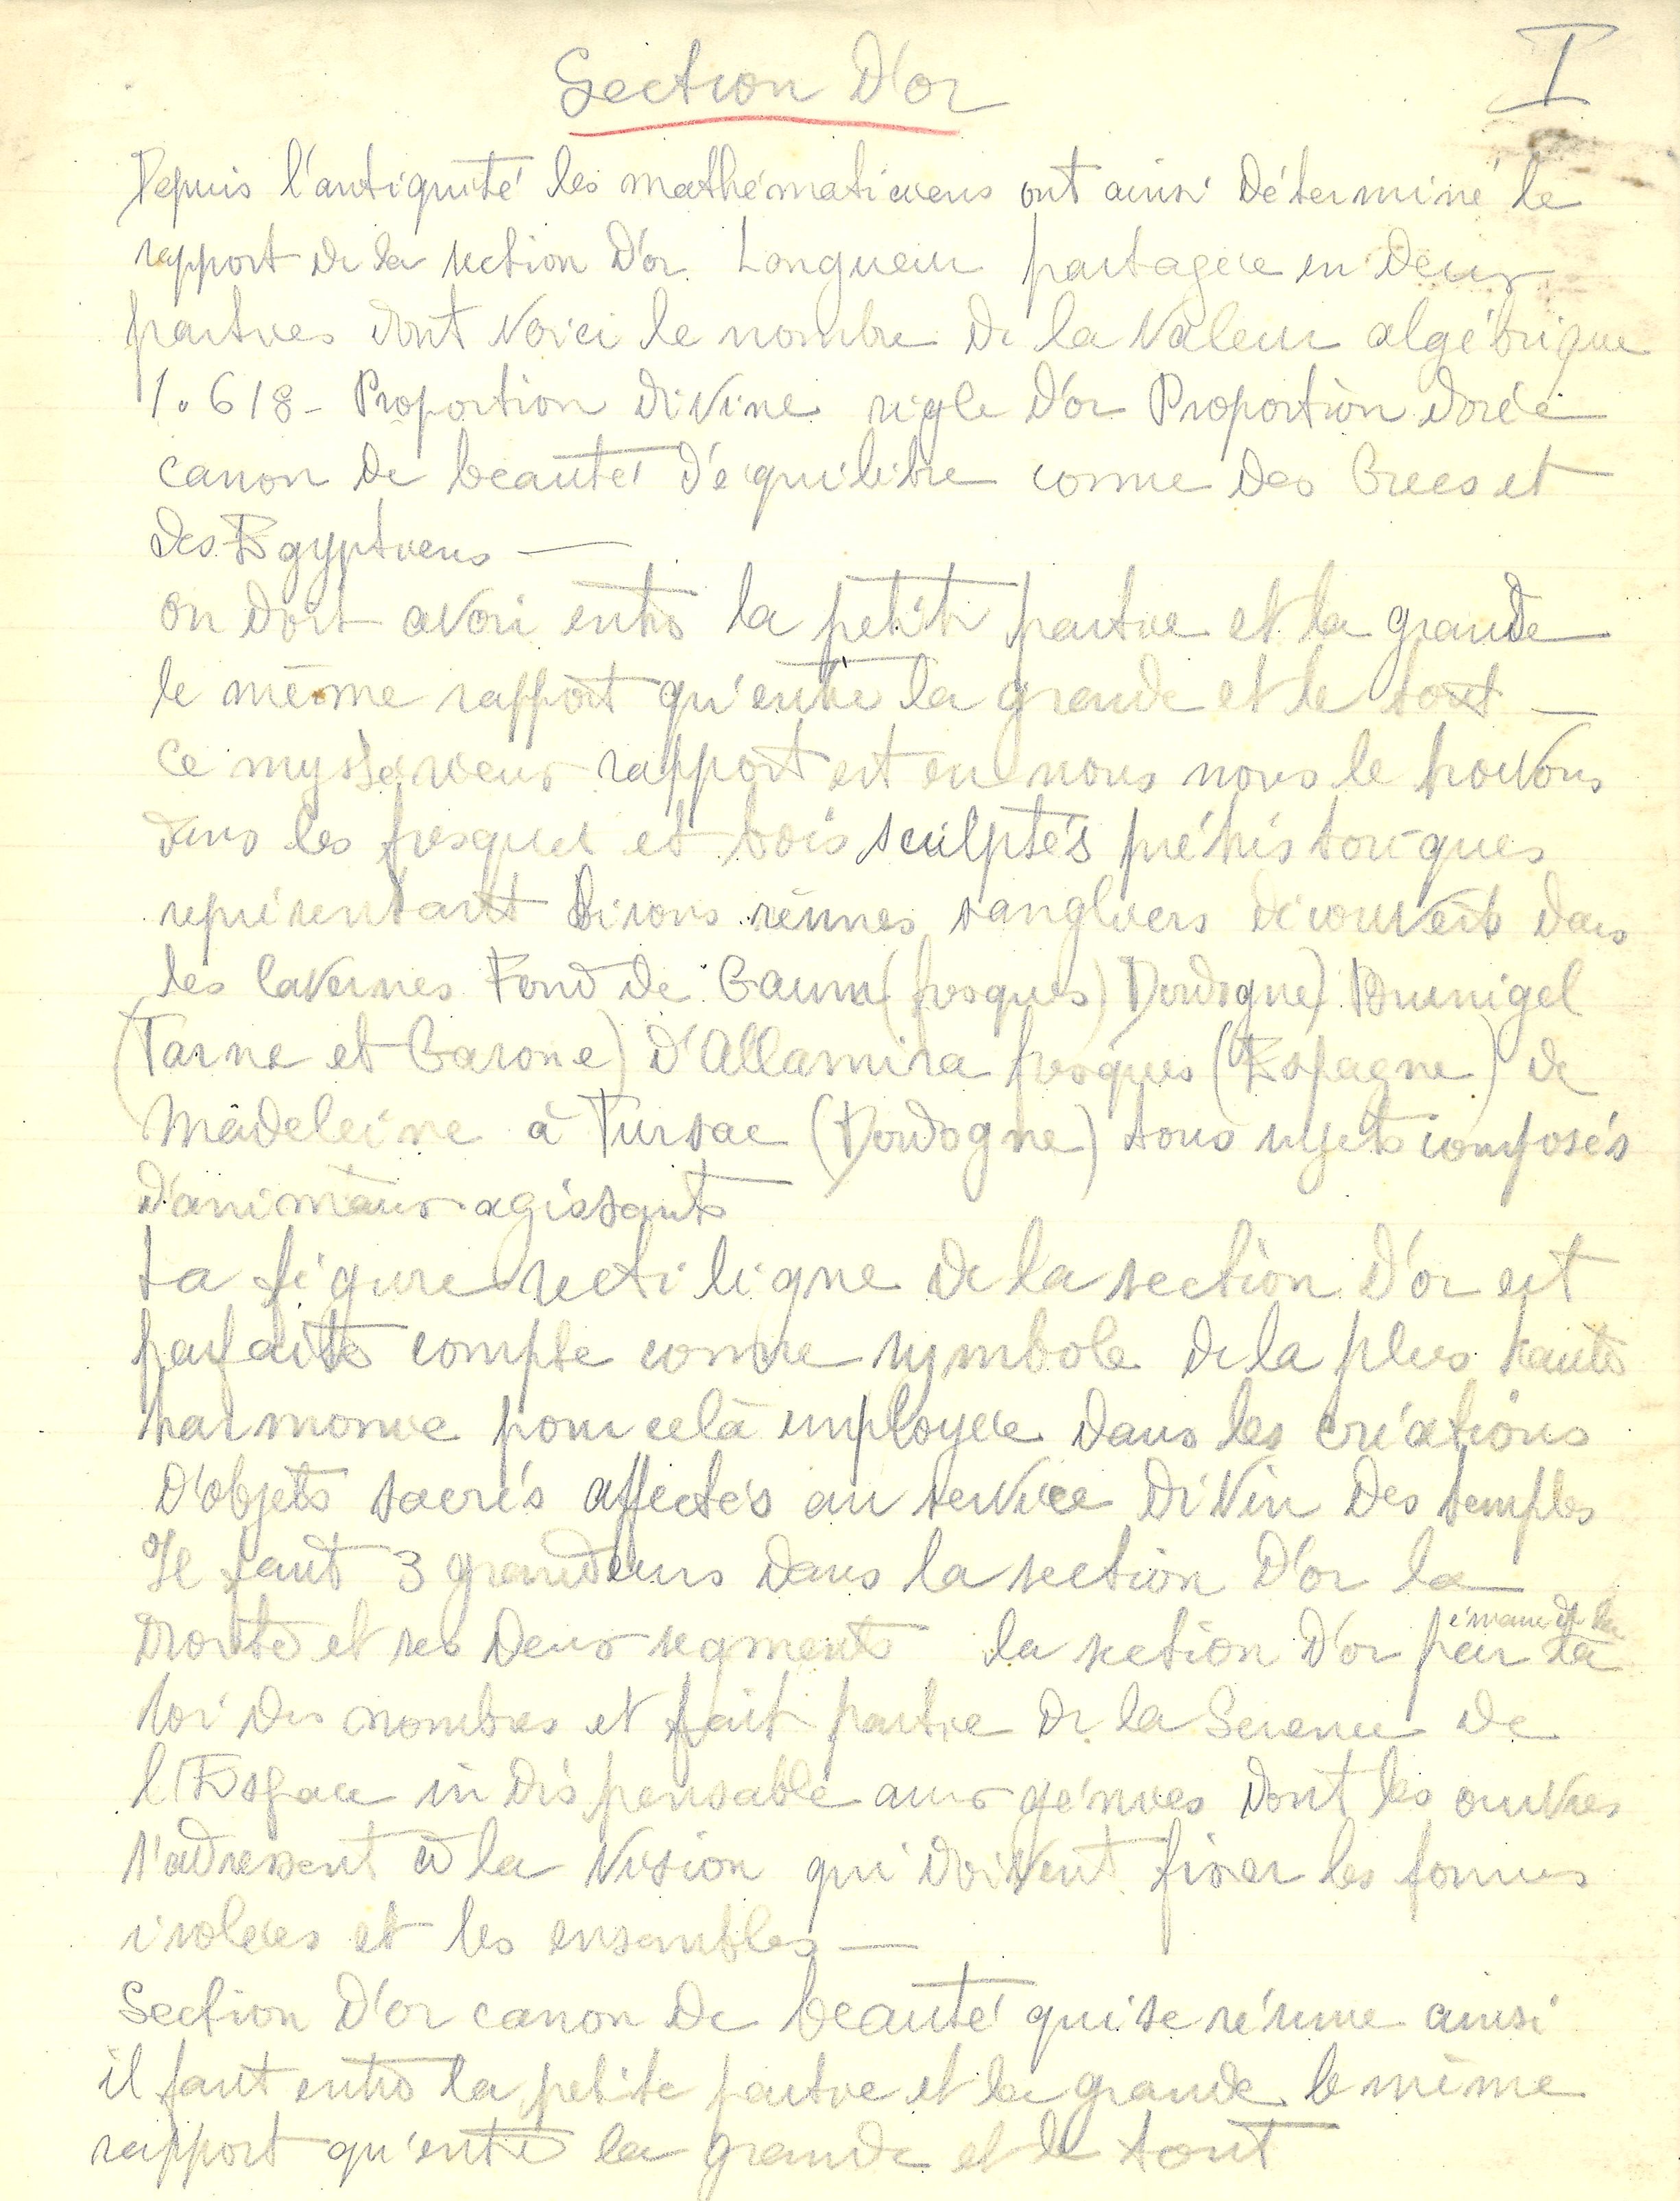 Section D'or
I
Depuis l'antiquité les mathématiciens ont ainsi déterminé le
rapport de la section D'or. Longueur partagée en Deux
parties dont voici le nombre de la valeur algébrique
1.618 - Proportion divine règle D'or Proportion dorée
canon de beauté D'équilibre connue des Grecs et
des Egyptiens —
on doit avoir entre la petite partie et la grande
le même rapport qu'entre la grande et le tout —
Ce mystérieux rapport est en nous nous le trouvons
dans les fresques et bois sculptés préhistoriques
représentant Bisons rènnes sangliers découverts dans
les cavernes Fond de Gaum (fresques) Dordogne) Brunigel
(Tarne et Garone) d'Altamira fresques (Espagne) de
Madeleine à Tursac (Dordogne) tous sujets composés
D'animaux agissants
La figure rectiligne de la section D'or est
parfaite compte comme symbole de la plus haute
harmonie pour celà employée dans les créations
D'objets sacrés affectés au service divin des temples
Il faut 3 grandeurs dans la section D'or la
Droite et ses Deux segments la section D'or par la
émane de la
loi des nombres et fait partie de la Science de
l'Espace indispensable aux génies dont les œuvres
s'adressent à la vision qui doivent fixer les formes
isolées et les ensembles —
Section D'or canon de beauté qui se résume ainsi
il faut entre la petite partie et la grande le même
rapport qu'entre la grande et le tout